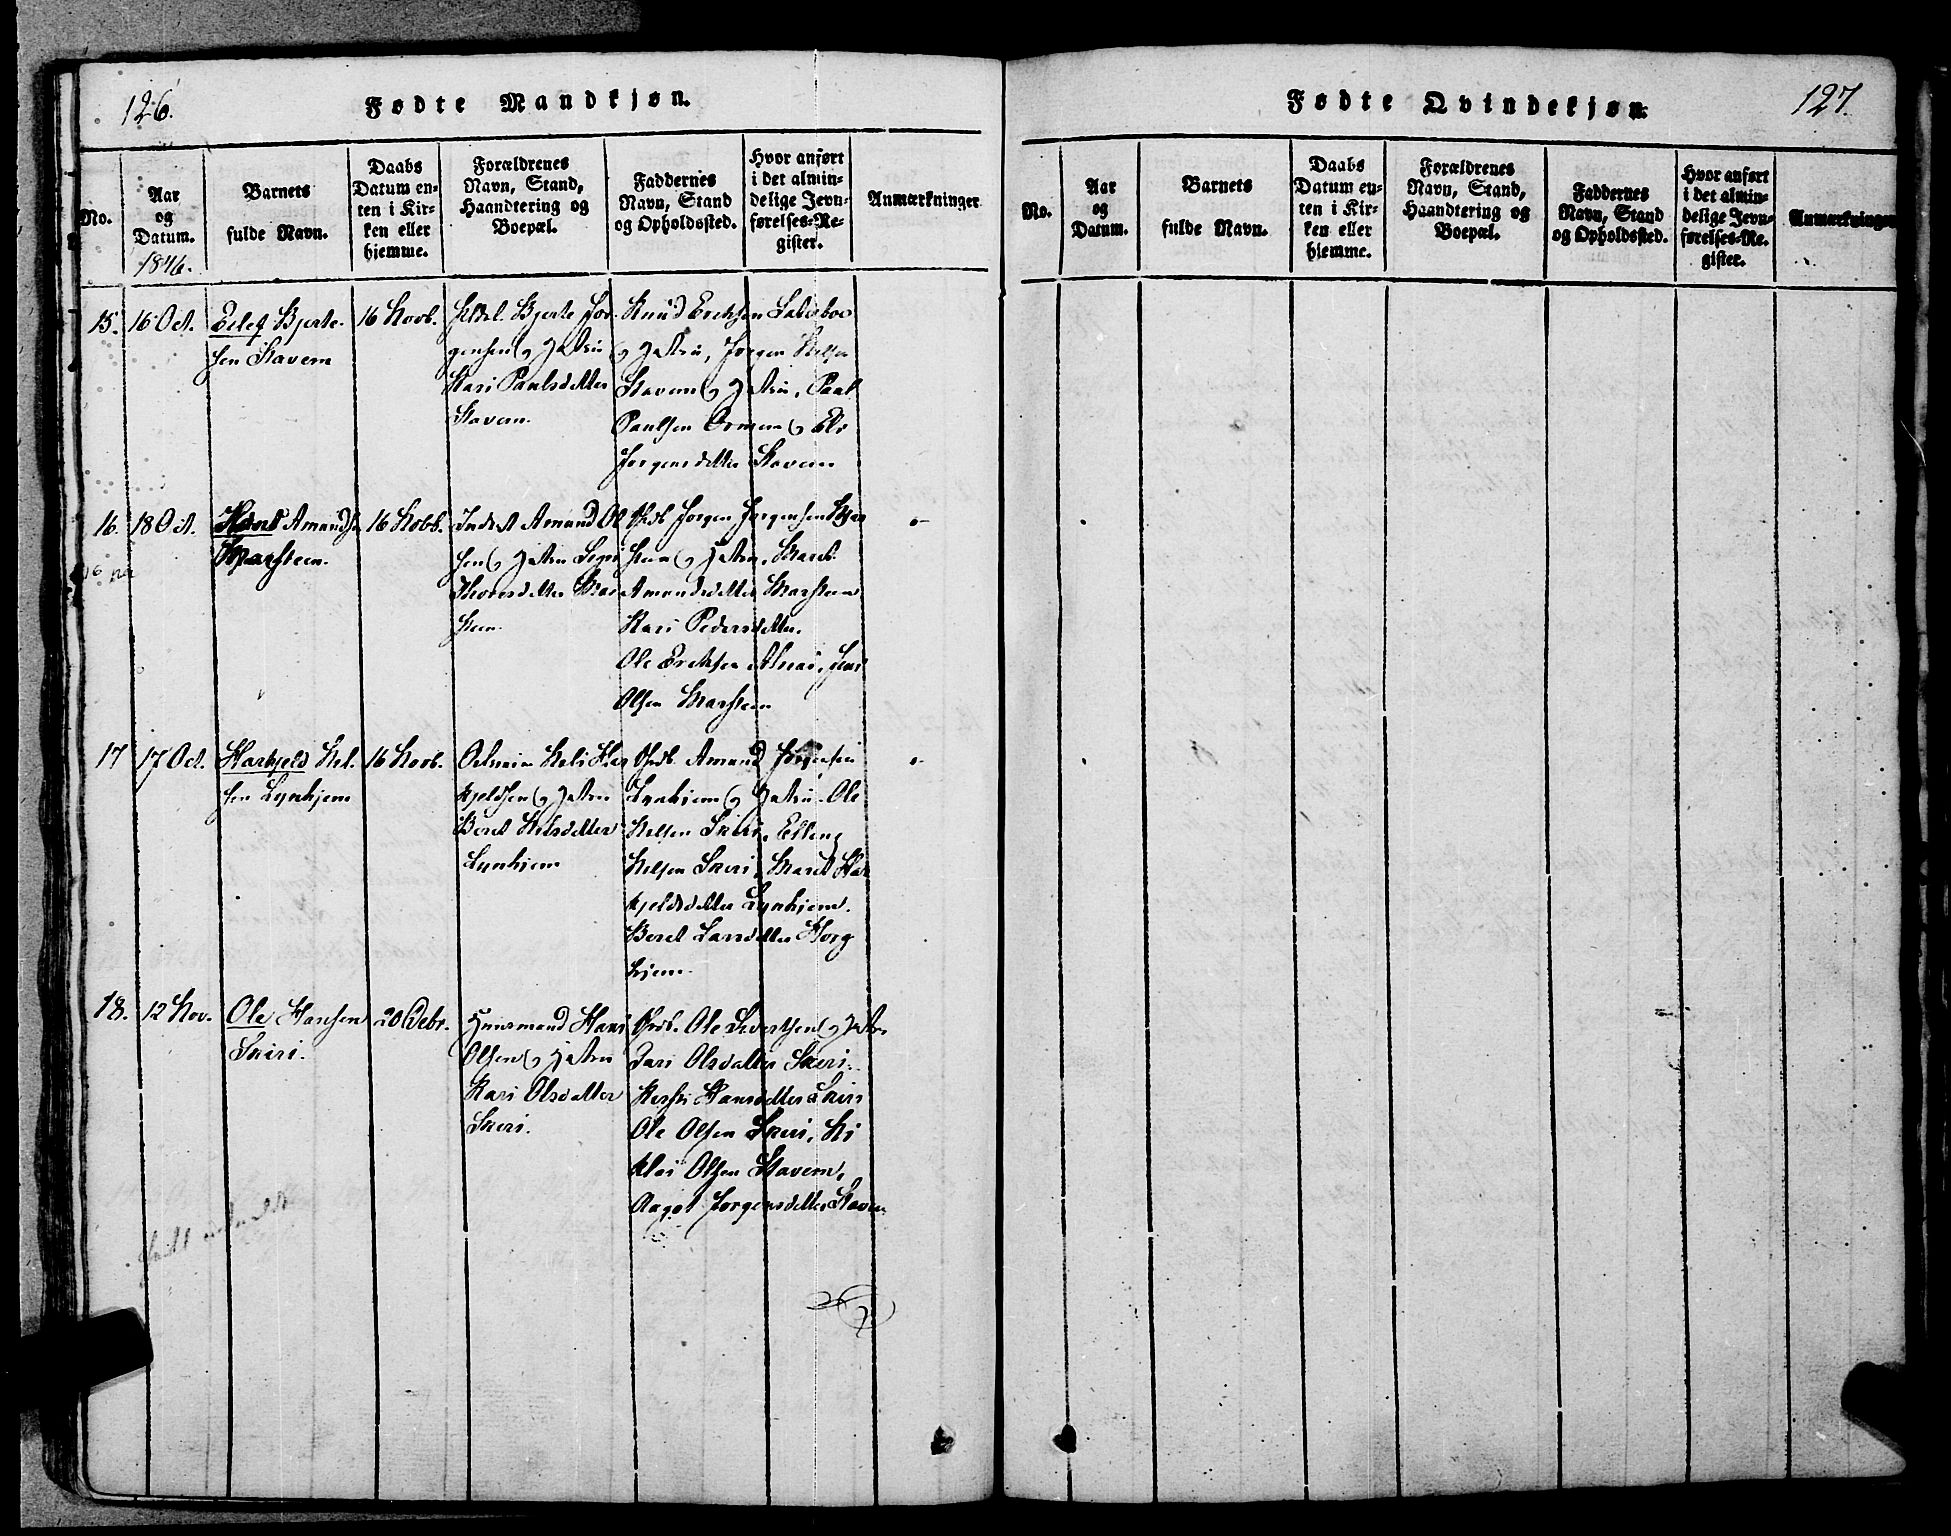 126.
Fødte Mandkjøn.
No.
Aar
og
Datum.
1846.
Barnets
fulde Navn.
Daabs
Datum en-
ten i Kir-
ken eller
hjemme.
Forældrenes
Navn, Stand,
Haandtering og
Boepæl.
Faddernes
Navn, Stand
og Opholdssted.
Hvor anført
i det almin-
delige Jevn-
førelses-Re-
gister.
Anmærkninger
15.
16 Oct.
Eilef Bjerte-
sen Stavem
16 Novb.
Bjerte Jør-
gensen og Hustru
Kari Paulsdatter
Stavem.
Knud Erichsen
og Hustru, Jørgen Nelsen
Stavem og Hustru, Paul
Paulsen Ormem og
Jørgensdatter Stavem
16.
18 Oct.
Amunds
Marstein.
16 Novb.
Inderst Amund Ol
sen og Hustru Sigri
Thoresdatter Mar
stein.
Grdb. Jørgen Jørgensen Mar
stein og Hustru, Marit
Amundsdatter Marstein
Kari Pedersdatter.
Ole Erichsen
Olsen Marstein
17
17 Oct.
Harkjeld Nel-
sen Lynhjem
16 Novb.
Nels Har
kjeldsen og Hustru
Beret Nelsdatter
Lynhjem
Grdb. Amund Jørgensen
Lynhjem og Hustru. Ole
Nelsen Skiri, Elling
Nelsen Skiri, Marit Har
kjeldsdatter Lynhjem.
Beret Larsdatter Horg
hjem.
18.
12 Nov.
Ole Hansen
Skiri.
20 Debr.
Huusmand Hans
Olsen og Hustru
Kari Olsdatter
Skiri.
Grdb. Ole Sivertsen og Hustru
Olsdatter Skiri.
Kersti Hansdatter Skiri
Ole Olsen Skiri, Ni
klas Olsen Stavem,
Aagot Jørgensdatter Stavem
127.
Fødte Qvindekjøn.
No.
Aar
og
Datum.
Barnets
fulde Navn.
Daabs
Datum en-
ten i Kir-
ken eller
hjemme.
Forældrenes
Navn, Stand,
Haandtering og
Boepæl.
Faddernes
Navn, Stand
og Opholdssted.
Hvor anført
i det almin-
delige Jevn-
førelses-Re-
gister.
Anmærkninger